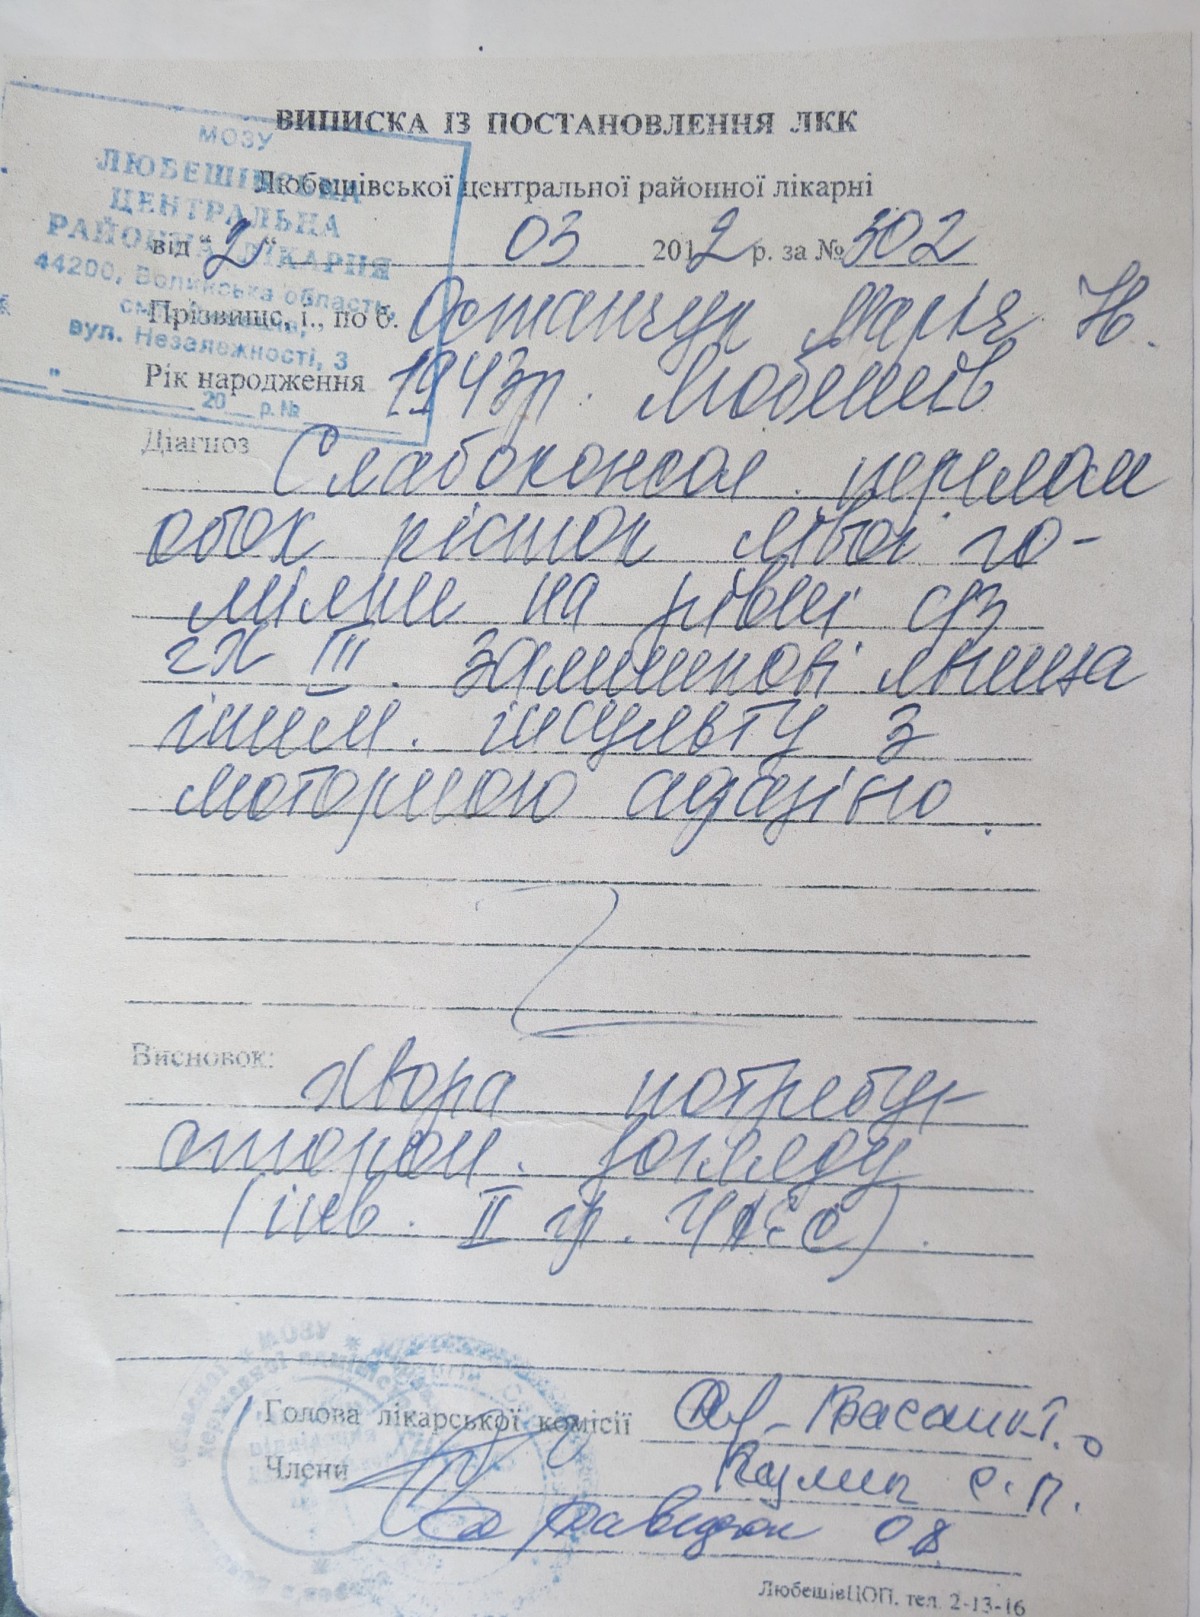 ВИПИСКА ІЗ ПОСТАНОВЛЕННЯ ЛКК
МОЗУ
ЛЮБЕШІВСЬКА
ЦЕНТРАЛЬНА
РАЙОННА ЛІКАРНЯ
44200, Волинська область,
вул. Незалежності, 3
20 р. №
Любешівської центральної районної лікарні
від "2" 03 2012 р. за № 302
Прізвище, і., по б. Остапчук Марія Н.
Рік народження 1943р. Любешів
Діагноз Слабоконсол. перелом
обох кісток лівої го-
мілки на рівні с/з
ГХ III. Залишкові явища
ішем. інсульту з
моторною афазією.
Висновок:
Хвора потребує
сторон. догляду
(інв. II гр. ЧАЕС).
Голова лікарської комісії
Члени
С.П.
ЛюбешівЦОП. тел. 2-13-16